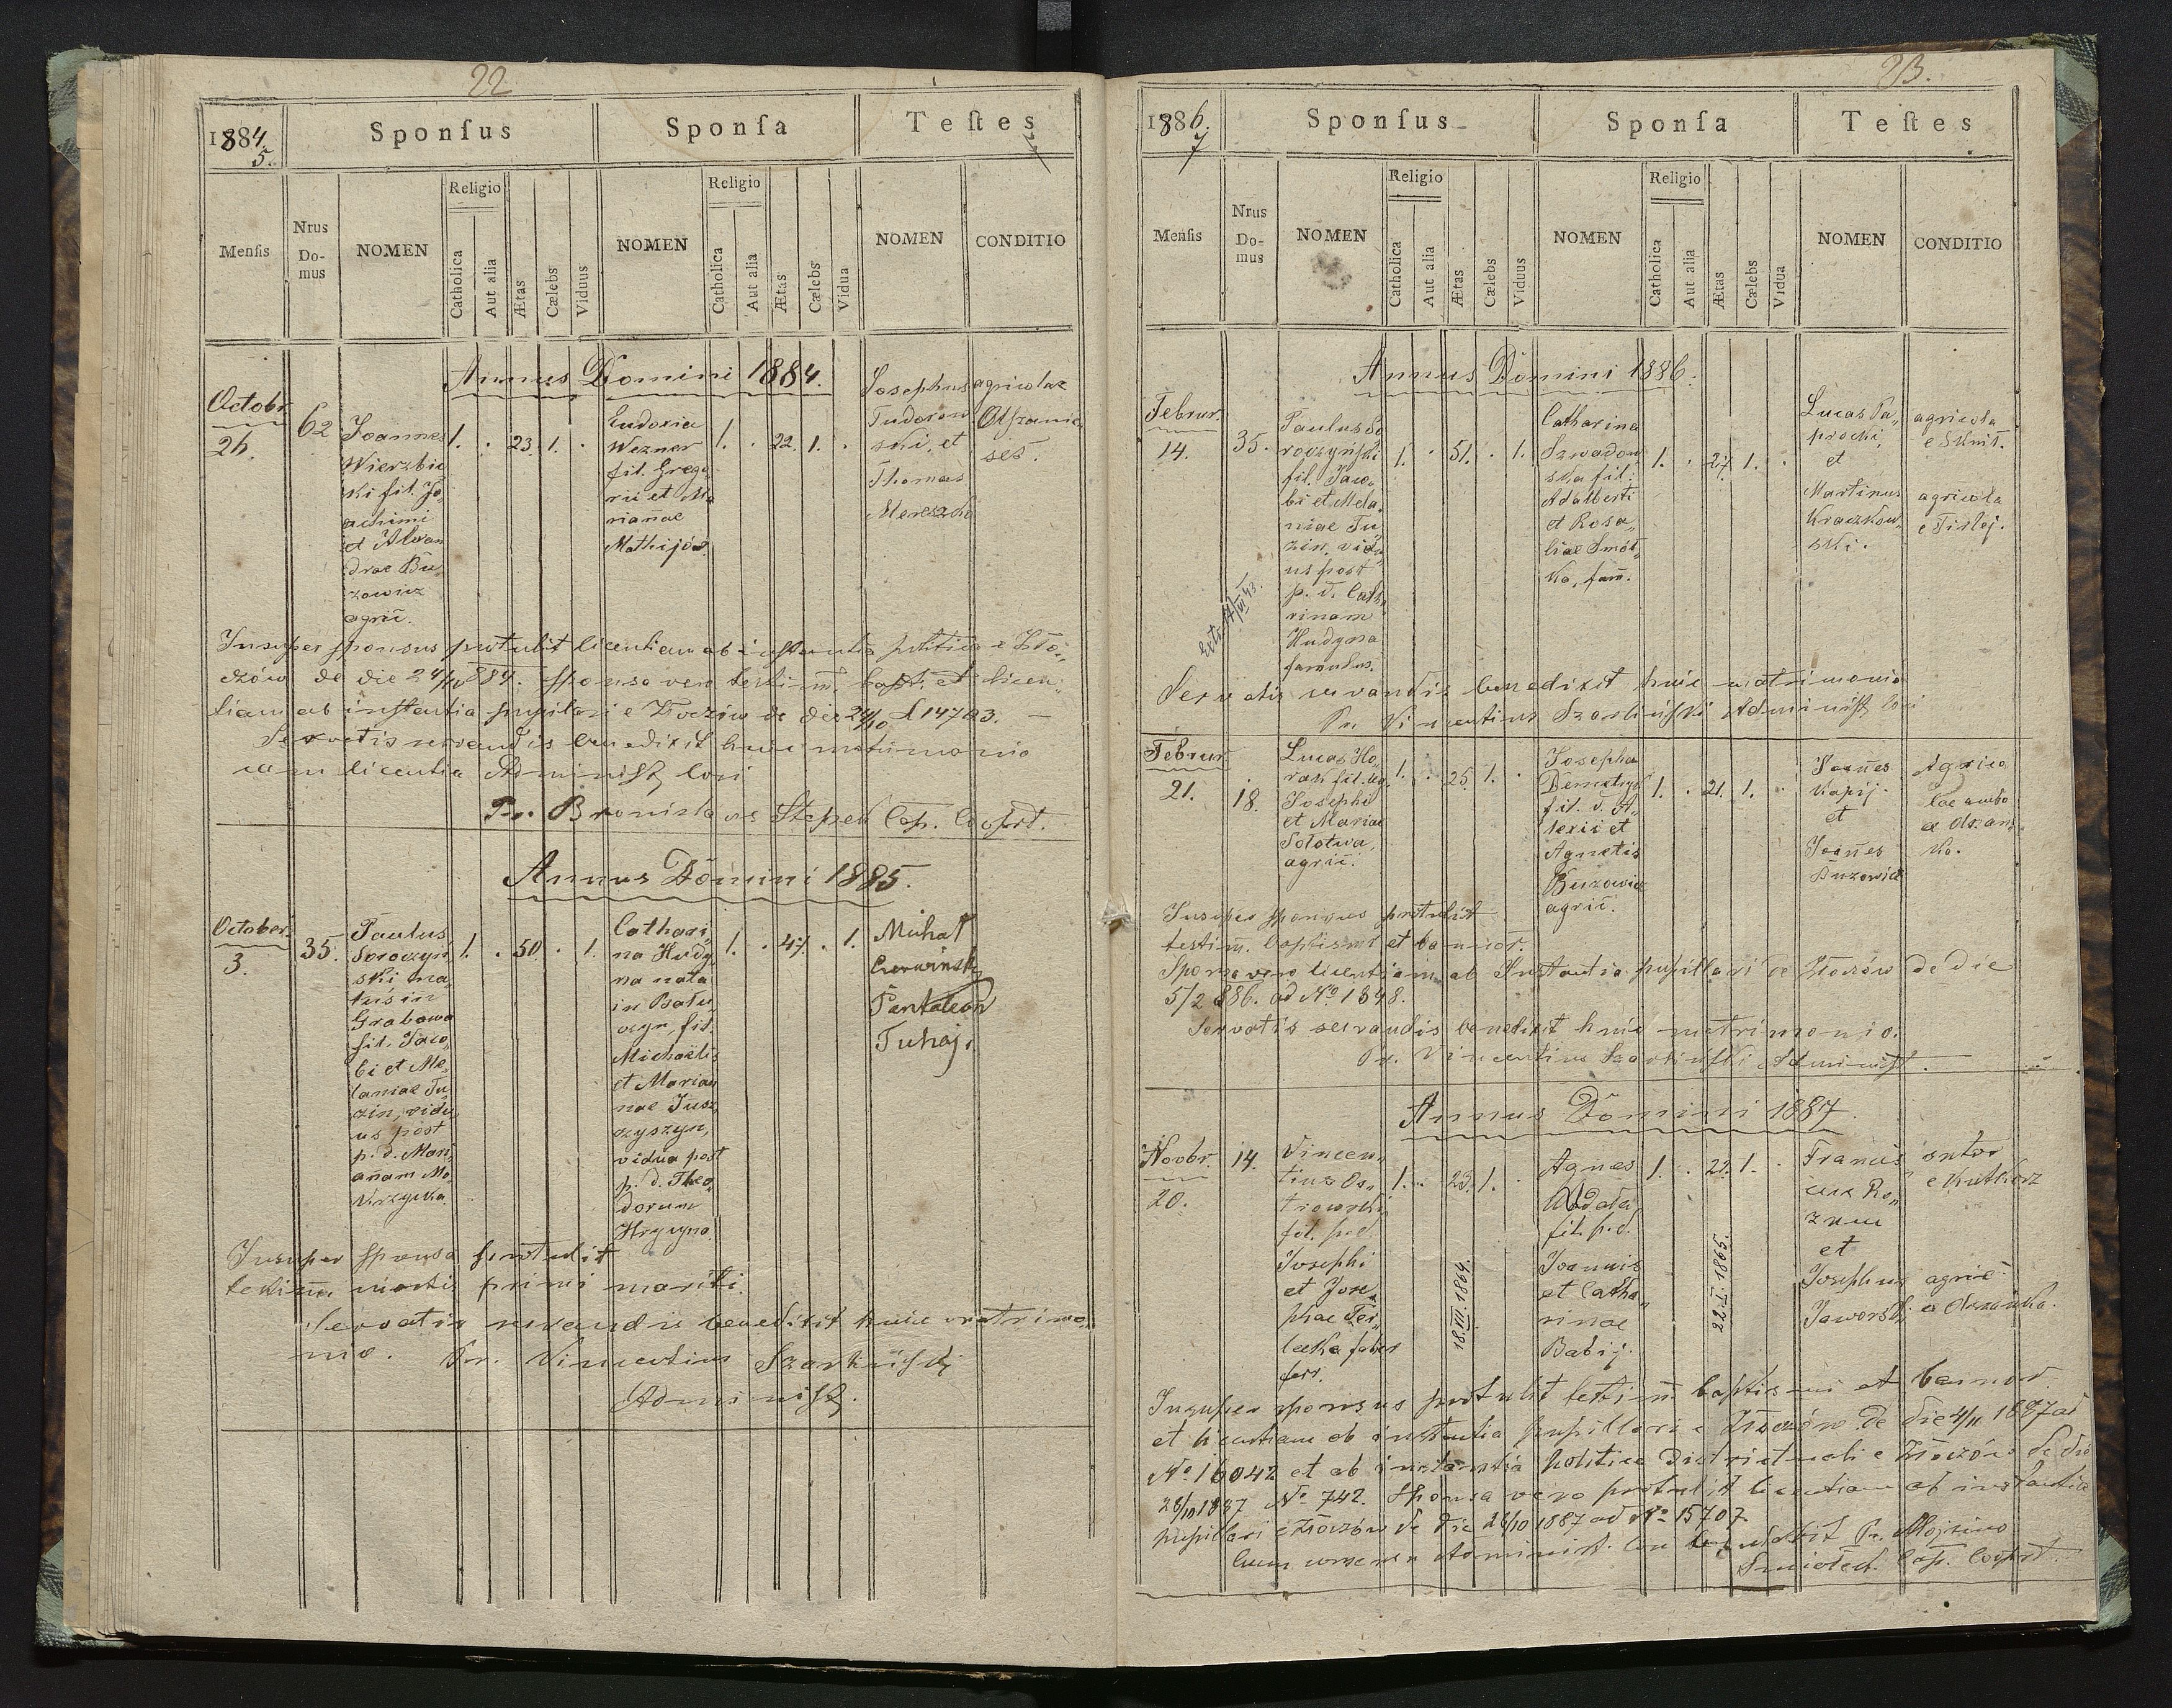 22
1884.
5.
Sponſus
Sponſa
Teſtes
Menſis
Nrus
Do-
mus
NOMEN
Religio
Catholica
Aut alia
Ætas
Cælebs
Viduus
NOMEN
Religio
Catholica
Aut alia
Ætas
Cælebs
Vidua
NOMEN
CONDITIO
Annus Domini 1884.
Octobr.
26.
62
Joannes
Wierzbic
ki fil. Jo„
achimi
et Alexan
drae Bu„
zowicz
agric.
1. . 23. 1. .
Eudoxia
Wezner
fil. Grego
rii et Ma
rianae
Mathijów.
1. . 22. 1. .
Josephus
Tudorow
ski, et
Thomas
Mereszko
agricolae
Insuper sponsus protulit licentiam ab instantia politica e Zło„
czów de die 24/10 884. sponsa vero testim. bapt. et licen„
tiam ab instantia pupilari e Złoczów de die 24/10 № 14703. —
Servatis servandis benedixit huic matrimonio
cum licentia Administ. loci
Pr. Bronislaus Stepek Cap. Cooprt.
Annus Domini 1885.
October.
3.
35.
Paulus
Soroczyn„
ski, na„
tus in
Grabowa
fil. Jaco„
bi et Me„
laniae Tu
zin, vidu„
us post
p. d. Mari„
annam Mo„
krzycka.
1. . 50. . 1.
Cathari„
na Hudy„
ma nata
in Batu„
czyn, fil.
Michaëlis
et Marian
nae Jusz„
czyszyn,
vidua post
p. d. Theo„
dorum
Hrycyna.
1. . 47. . 1.
Michał
Czerwiński
Pantaleon
Tuhaj.
Insuper sponsa protulit
testim. mortis primi mariti.
Servatis servandis benedixit huic matrimo„
nio. Pr. Vincentius Szarkiński
Administ.
23.
1886.
7
Sponſus
Sponſa
Teſtes
Menſis
Nrus
Do-
mus
NOMEN
Religio
Catholica
Aut alia
Ætas
Cælebs
Viduus
NOMEN
Religio
Catholica
Aut alia
Ætas
Cælebs
Vidua
NOMEN
CONDITIO
Annus Domini 1886.
Februr.
14.
35.
Paulus So
roczyński
fil. Jaco„
bi et Mela„
niae Tu„
zin, vidu„
us post
p. d. Catha
rinam
Hudyma
famulus.
1. . 51. . 1.
Catharina
Szwadow
ska fil.
Adalberti
et Rosa„
liae Smol„
ka, fam.
1. . 27. 1. .
Lucas Pa„
procki,
et
Martinus
Kraczkow„
ski.
agricola
e Sknit.
agricola
Servatis servandis benedixit huic matrimonio
Pr. Vincentius Szarkiński Administ. loci
Februr.
21.
18.
Lucas Ho„
rak fil. leg.
Josephi
et Mariae
Sołotwa,
agric.
1. . 25. 1. .
Josepha
Demetryk
fil. d. A„
lexii et
Agnetis
Buzowicz
agric.
1. . 21. 1. .
Joannes
Kapij
et
Joannes
Buzowicz
Agrico„
lae ambo
Insuper sponsus protulit
testim. baptismi et bannor.
Sponsa vero licentiam ab Instantia pupillari de Złoczów de die
5/2 886. ad No 1398.
Servatis servandis benedixit huic matrimonio.
Pr. Vincentius Szarkiński Administ.
Annus Domini 1887.
Novbr.
20.
14.
Vincen„
tius Os„
trowski,
fil. p. d.
Josephi
et Jose„
phae Ter„
lecka faber
ferr.
1. . 23. 1. .
18.III.1864.
Agnes
fil. p. d.
Joannis
et Catha„
rinae
Babij.
1. . 22. 1. .
22.I.1865.
Francis„
cus Ro„
et
Josephus
Jaworski
sutor
e Kutkorz
agric.
Insuper sponsus protulit testim. baptismi et bannor.
et licentiam ab instantia pupillari e Złoczów de die 4/11 1887 ad
No 16042 et ab instantia politica districtuali e Złoczów de die
28/10 1887 No 742. Sponsa vero protulit licentiam ab instantia
pupillari e Złoczów de die 26/10 1887 ad No 15707.
Cap. Cooprt.